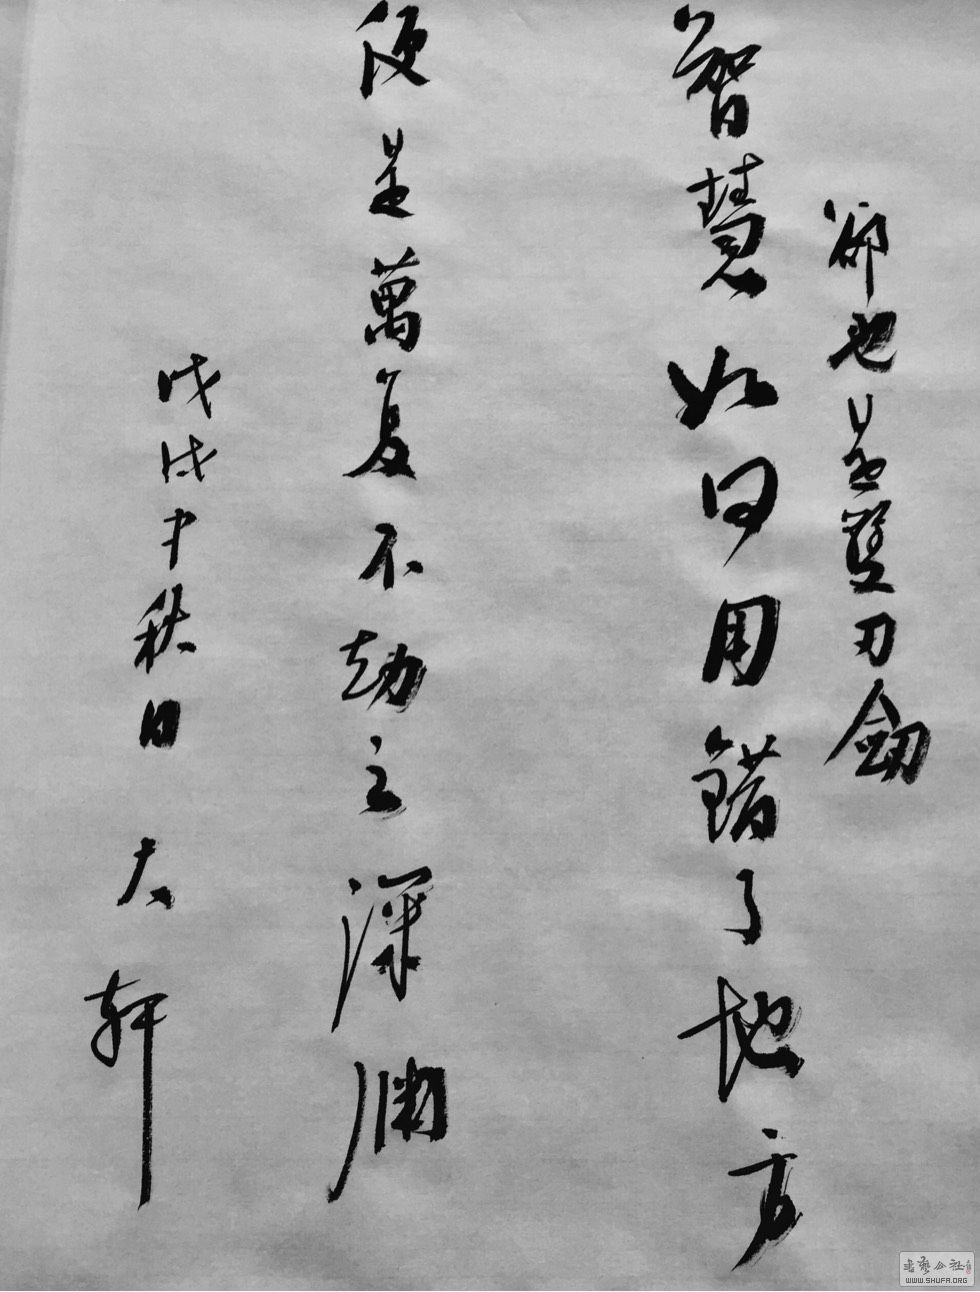 智慧如同用錯了地方
卻也是雙刃劍
便是萬复不劫之深淵
戊戌中秋日
大軒
書藝公社
WWW.SHUFA.ORG